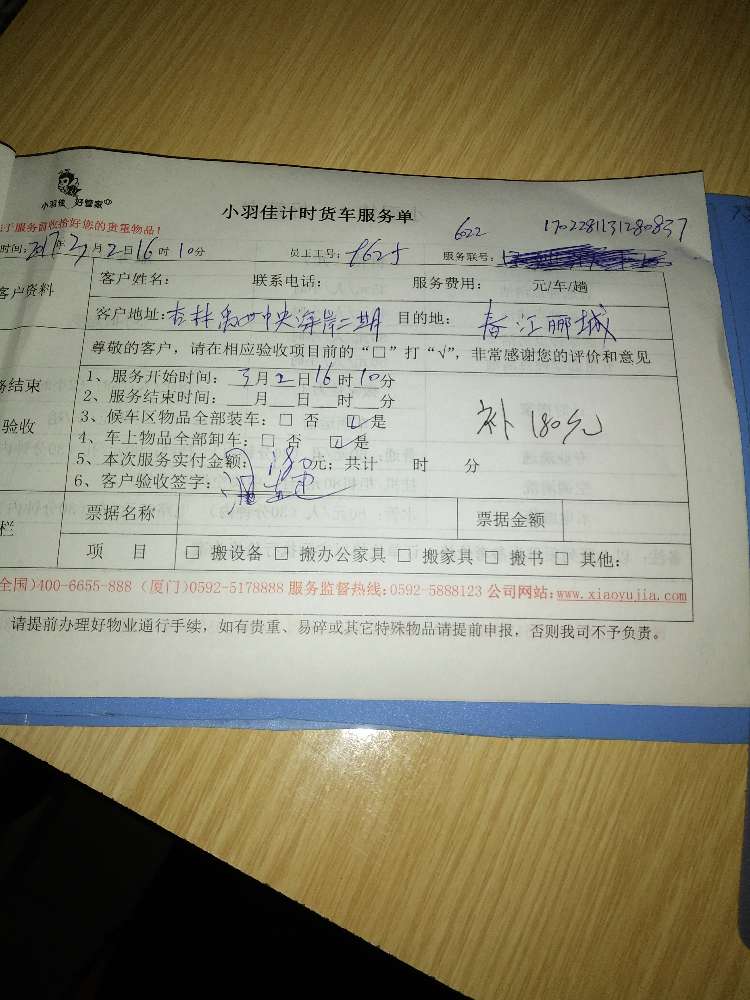 小羽佳 好管家
小羽佳计时货车服务单
服务前收拾好您的贵重物品!
622 170228131280837
时间:2017年3月2日16时10分 员工工号: 服务联号:
客户资料
客户姓名: 联系电话: 服务费用: 元/车/趟
客户地址:杏林 中央海岸二期 目的地: 春江郦城
尊敬的客户,请在相应验收项目前的“□”打“√”,非常感谢您的评价和意见
务结束
验收
1、服务开始时间: 3月2日16时10分
2、服务结束时间: 月 日 时 分
3、候车区物品全部装车:□ 否 ☑是
4、车上物品全部卸车:□ 否 ☑是
5、本次服务实付金额:180元;共计 时 分
6、客户验收签字:
补180元
栏
票据名称 票据金额
项 目 □ 搬设备 □ 搬办公家具 □ 搬家具 □ 搬书 □ 其他:
全国)400-6655-888 (厦门)0592-5178888 服务监督热线:0592-5888123 公司网站:www.xiaoyujia.com
请提前办理好物业通行手续,如有贵重、易碎或其它特殊物品请提前申报,否则我司不予负责。